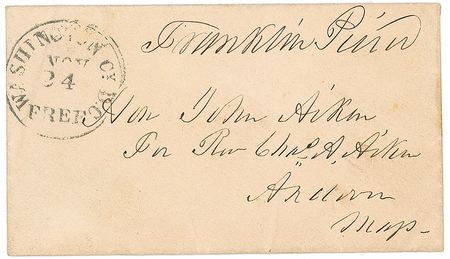 Franklin Pierce
WASHINGTON CY. D.C.
NOV
24
FREE
Hon John Aiken
For Rev Chas. A. Aiken
Andover
Mass-